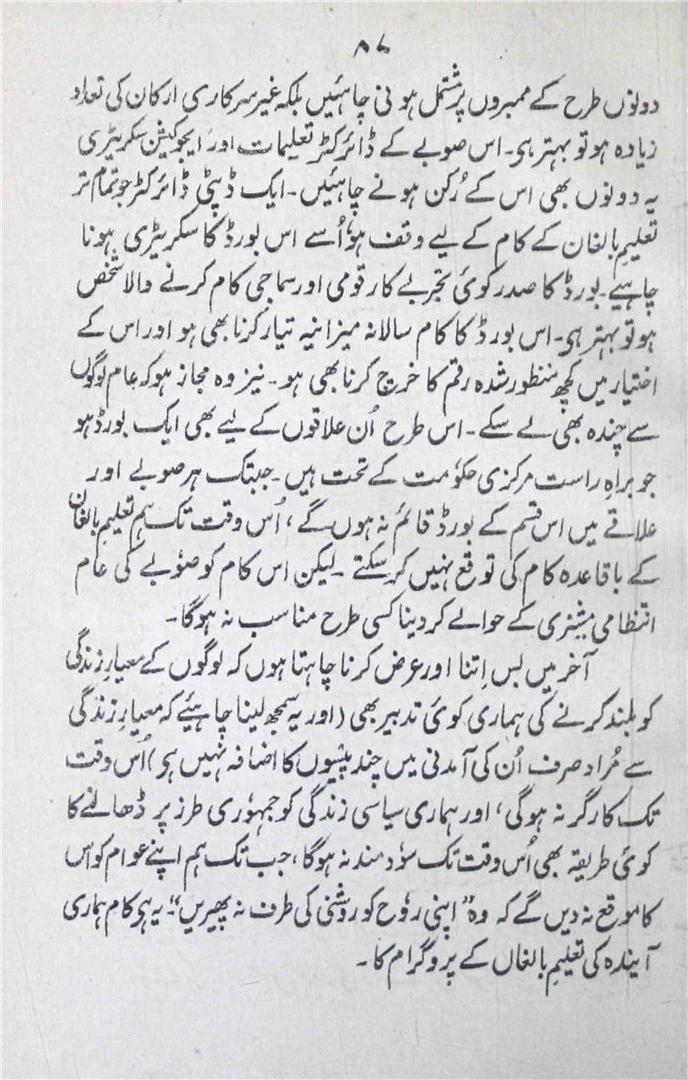 ۸۷
دونوں طرح کے ممبروں پر مشتمل ہونی چاہئیں بلکہ غیر سرکاری ارکان کی تعداد
زیادہ ہو تو بہتر ہی۔ اس صوبے کے ڈائرکٹر تعلیمات اور ایجوکیشن سکریٹری
یہ دونوں بھی اس کے رُکن ہونے چاہئیں۔ ایک ڈپٹی ڈائرکٹر جو تمام تر
تعلیمِ بالغان کے کام کے لیے وقف ہو، اُسے اس بورڈ کا سکریٹری ہونا
چاہیے۔ بورڈ کا صدر کوئی تجربے کار قومی اور سماجی کام کرنے والا شخص
ہو تو بہتر ہی۔ اس بورڈ کا کام سالانہ میزانیہ تیار کرنا بھی ہو اور اس کے
اختیار میں کچھ منظور شدہ رقم کا خرچ کرنا بھی ہو۔ نیز وہ مجاز ہو کہ عام لوگوں
سے چندہ بھی لے سکے۔ اس طرح اُن علاقوں کے لیے بھی ایک بورڈ ہو
جو براہِ راست مرکزی حکومت کے تحت ہیں۔ جبتک ہر صوبے اور
علاقے میں اس قسم کے بورڈ قائم نہ ہوں گے، اُس وقت تک ہم تعلیم بالغان
کے باقاعدہ کام کی توقع نہیں کر سکتے۔ لیکن اس کام کو صوٗبے کی عام
انتظامی مشینری کے حوالے کر دینا کسی طرح مناسب نہ ہوگا۔
آخر میں بس اِتنا اور عرض کرنا چاہتا ہوں کہ لوگوں کے معیارِ زندگی
کو بلند کرنے کی ہماری کوئی تدبیر بھی (اور یہ سمجھ لینا چاہیئے کہ معیارِ زندگی
سے مُراد صرف اُن کی آمدنی میں چند پیسوں کا اضافہ نہیں ہی) اُس وقت
تک کارگر نہ ہوگی، اور ہماری سیاسی زندگی کو جمہوٗری طرز پر ڈھالنے کا
کوئی طریقہ بھی اُس وقت تک سوٗدمند نہ ہوگا، جب تک ہم اپنے عوام کو اس
کا موقع نہ دیں گے کہ وہ ”اپنی روٗح کو روشنی کی طرف نہ پھیریں“۔ یہ ہی کام ہماری
آیندہ کی تعلیمِ بالغاں کے پروگرام کا۔